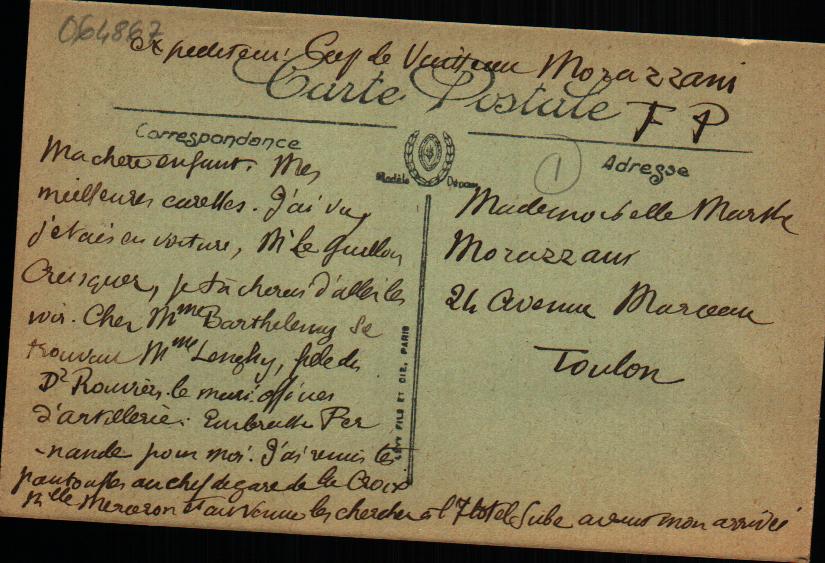 064867
Expediteur: Cap de Vaisseau Morazzani
Carte Postale
F P
Correspondance
Modèle Déposé
1
Adresse
Ma chère enfant. Mes
meilleures caresses. J'ai vu,
j'étais en voiture, Mr Le Guillou
Creisquer, je tâcherai d'aller les
voir. Chez Mme Barthelemy se
trouvait Mme Lenghy, fille du
Dr Rouvier. le mari officier
d'artillerie. Embrasse Fer
-nande pour moi. J'ai remis les
pantoufles au chef de gare de la Croix
Melle Merceron étant venue les chercher à l'Hotel Sube avant mon arrivée
Mademoiselle Marthe
Morazzani
24 Avenue Marceau
Toulon
LEVY FILS ET CIE, PARIS